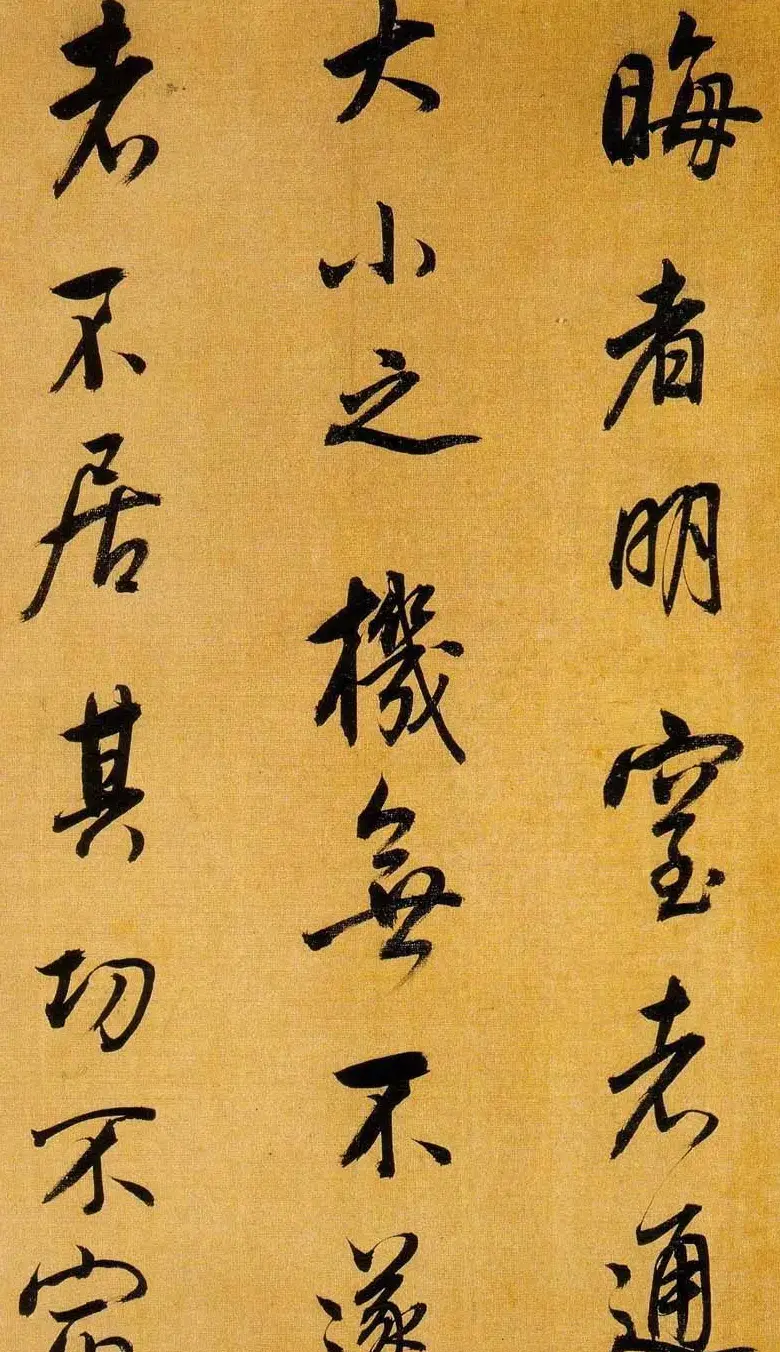 晦者明窒者通
大小之機無不遂
者不居其功不